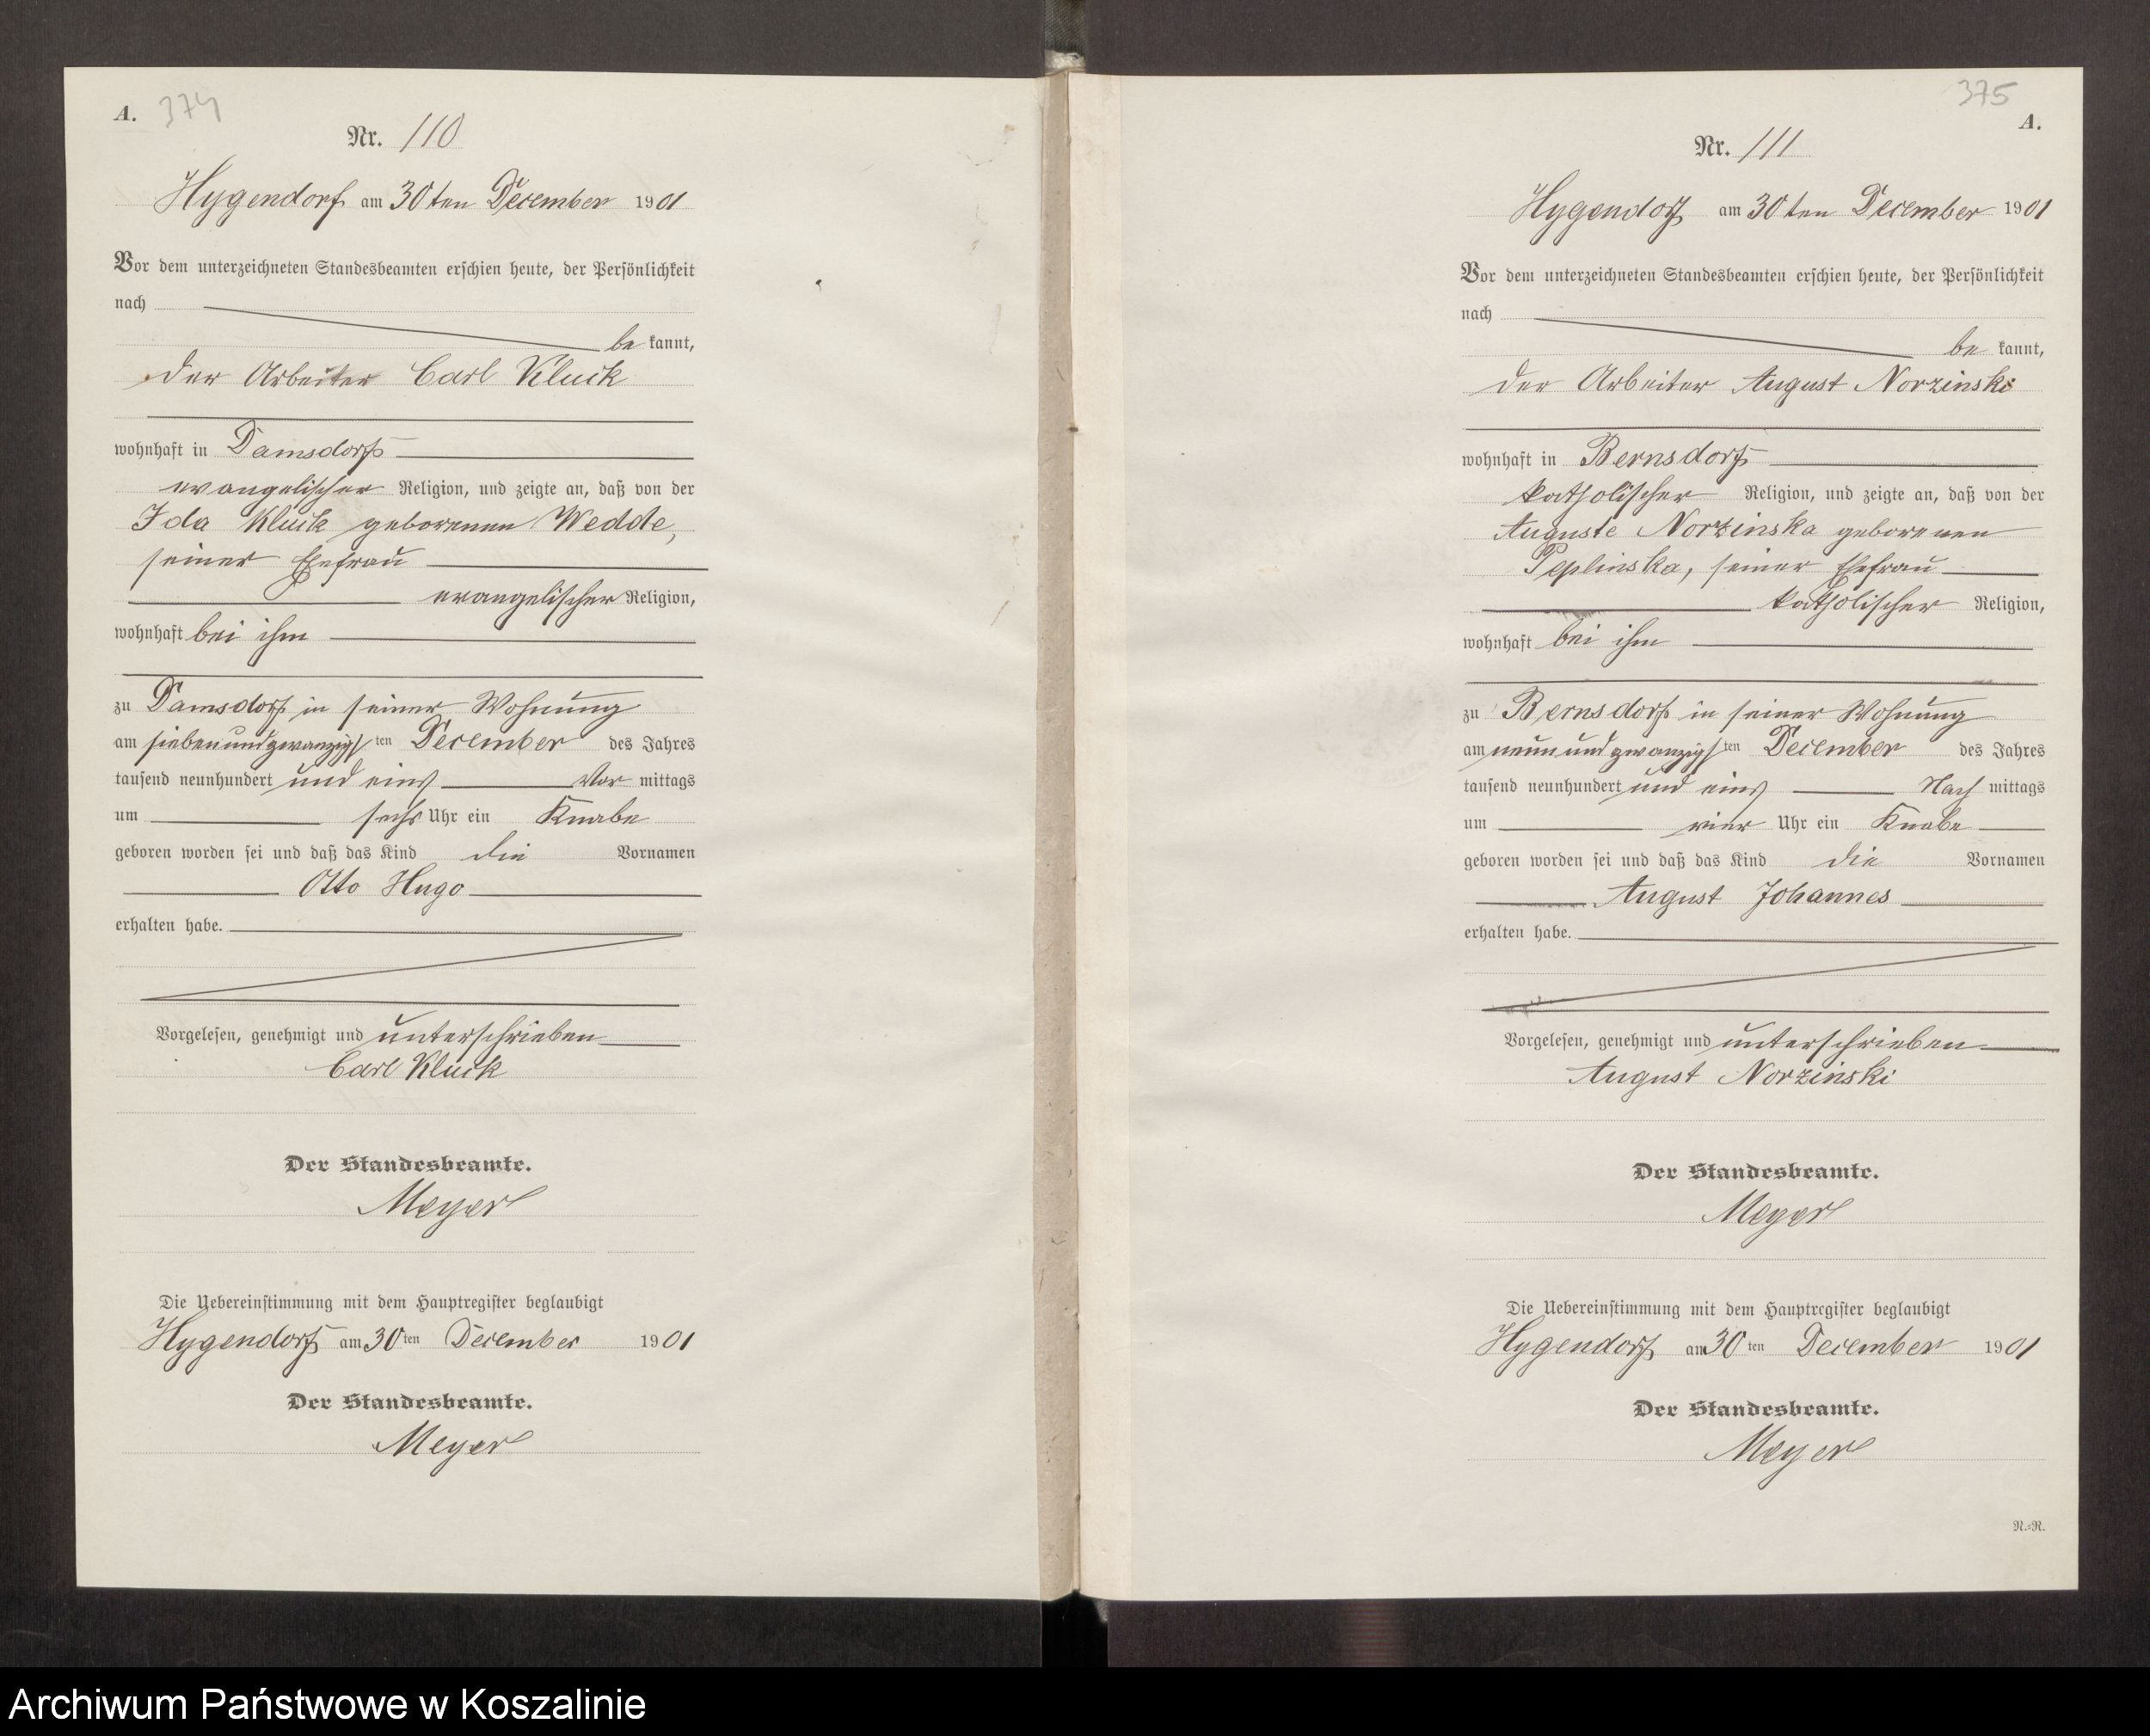 A. 374
Nr. 110
Hygendorf am 30ten December 1901
Vor dem unterzeichneten Standesbeamten erschien heute, der Persönlichkeit
nach
be kannt,
der Arbeiter Carl Kluck
wohnhaft in Damsdorf
evangelischer Religion, und zeigte an, daß von der
Ida Kluck geborenen Wedde,
seiner Ehefrau
evangelischer Religion,
wohnhaft bei ihm
zu Damsdorf in seiner Wohnung
am siebenundzwanzigsten December des Jahres
tausend neunhundert und eins Vor mittags
um sechs Uhr ein Knabe
geboren worden sei und daß das Kind die Vornamen
Otto Hugo
erhalten habe.
Vorgelesen, genehmigt und unterschrieben
Carl Kluck
Der Standesbeamte.
Meyer
Die Uebereinstimmung mit dem Hauptregister beglaubigt
Hygendorf am 30ten December 1901
Der Standesbeamte.
Meyer
375
A.
Nr. 111
Hygendorf am 30ten December 1901
Vor dem unterzeichneten Standesbeamten erschien heute, der Persönlichkeit
nach
be kannt,
der Arbeiter August Norzinski
wohnhaft in Bernsdorf
katholischer Religion, und zeigte an, daß von der
Auguste Norzinska geborenen
Peplinska, seiner Ehefrau
katholischer Religion,
wohnhaft bei ihm
zu Bernsdorf in seiner Wohnung
am neunundzwanzigsten December des Jahres
tausend neunhundert und eins Nach mittags
um vier Uhr ein Knabe
geboren worden sei und daß das Kind die Vornamen
August Johannes
erhalten habe.
Vorgelesen, genehmigt und unterschrieben
August Norzinski
Der Standesbeamte.
Meyer
Die Uebereinstimmung mit dem Hauptregister beglaubigt
Hygendorf am 30ten December 1901
Der Standesbeamte.
Meyer
N.=N.
Archiwum Państwowe w Koszalinie